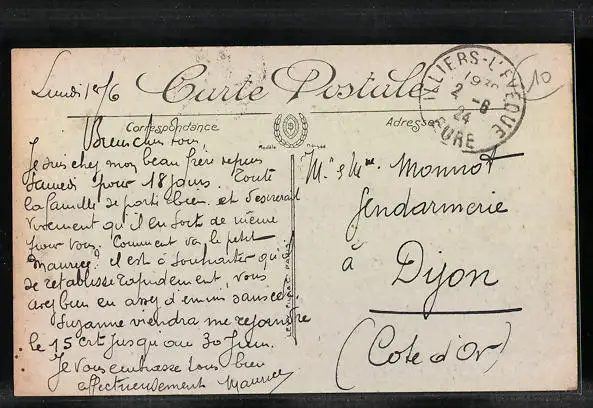 Lundi 1er/6
Carte Postale
TILLIERS-L'EVEQUE
19
2-6
24
EURE
10
Correspondance
Adresse
Modèle Déposé
Bien chers vous,
Je suis chez mon beau frère depuis
samedi pour 18 jours. Toute
la famille se porte bien et désirerait
vivement qu'il en soit de même
pour vous. Comment va le petit
Maurice? Il est à souhaiter qu'il
se rétablisse rapidement, vous
avez bien en assez d'ennuis sans ce
Suzanne viendra me rejoindre
le 15 ct jusqu'au 30 Juin.
Je vous embrasse tous bien
affectueusement Maurice
Mr & Mme Monnot
Gendarmerie
à
Dijon
(Côte d'Or)